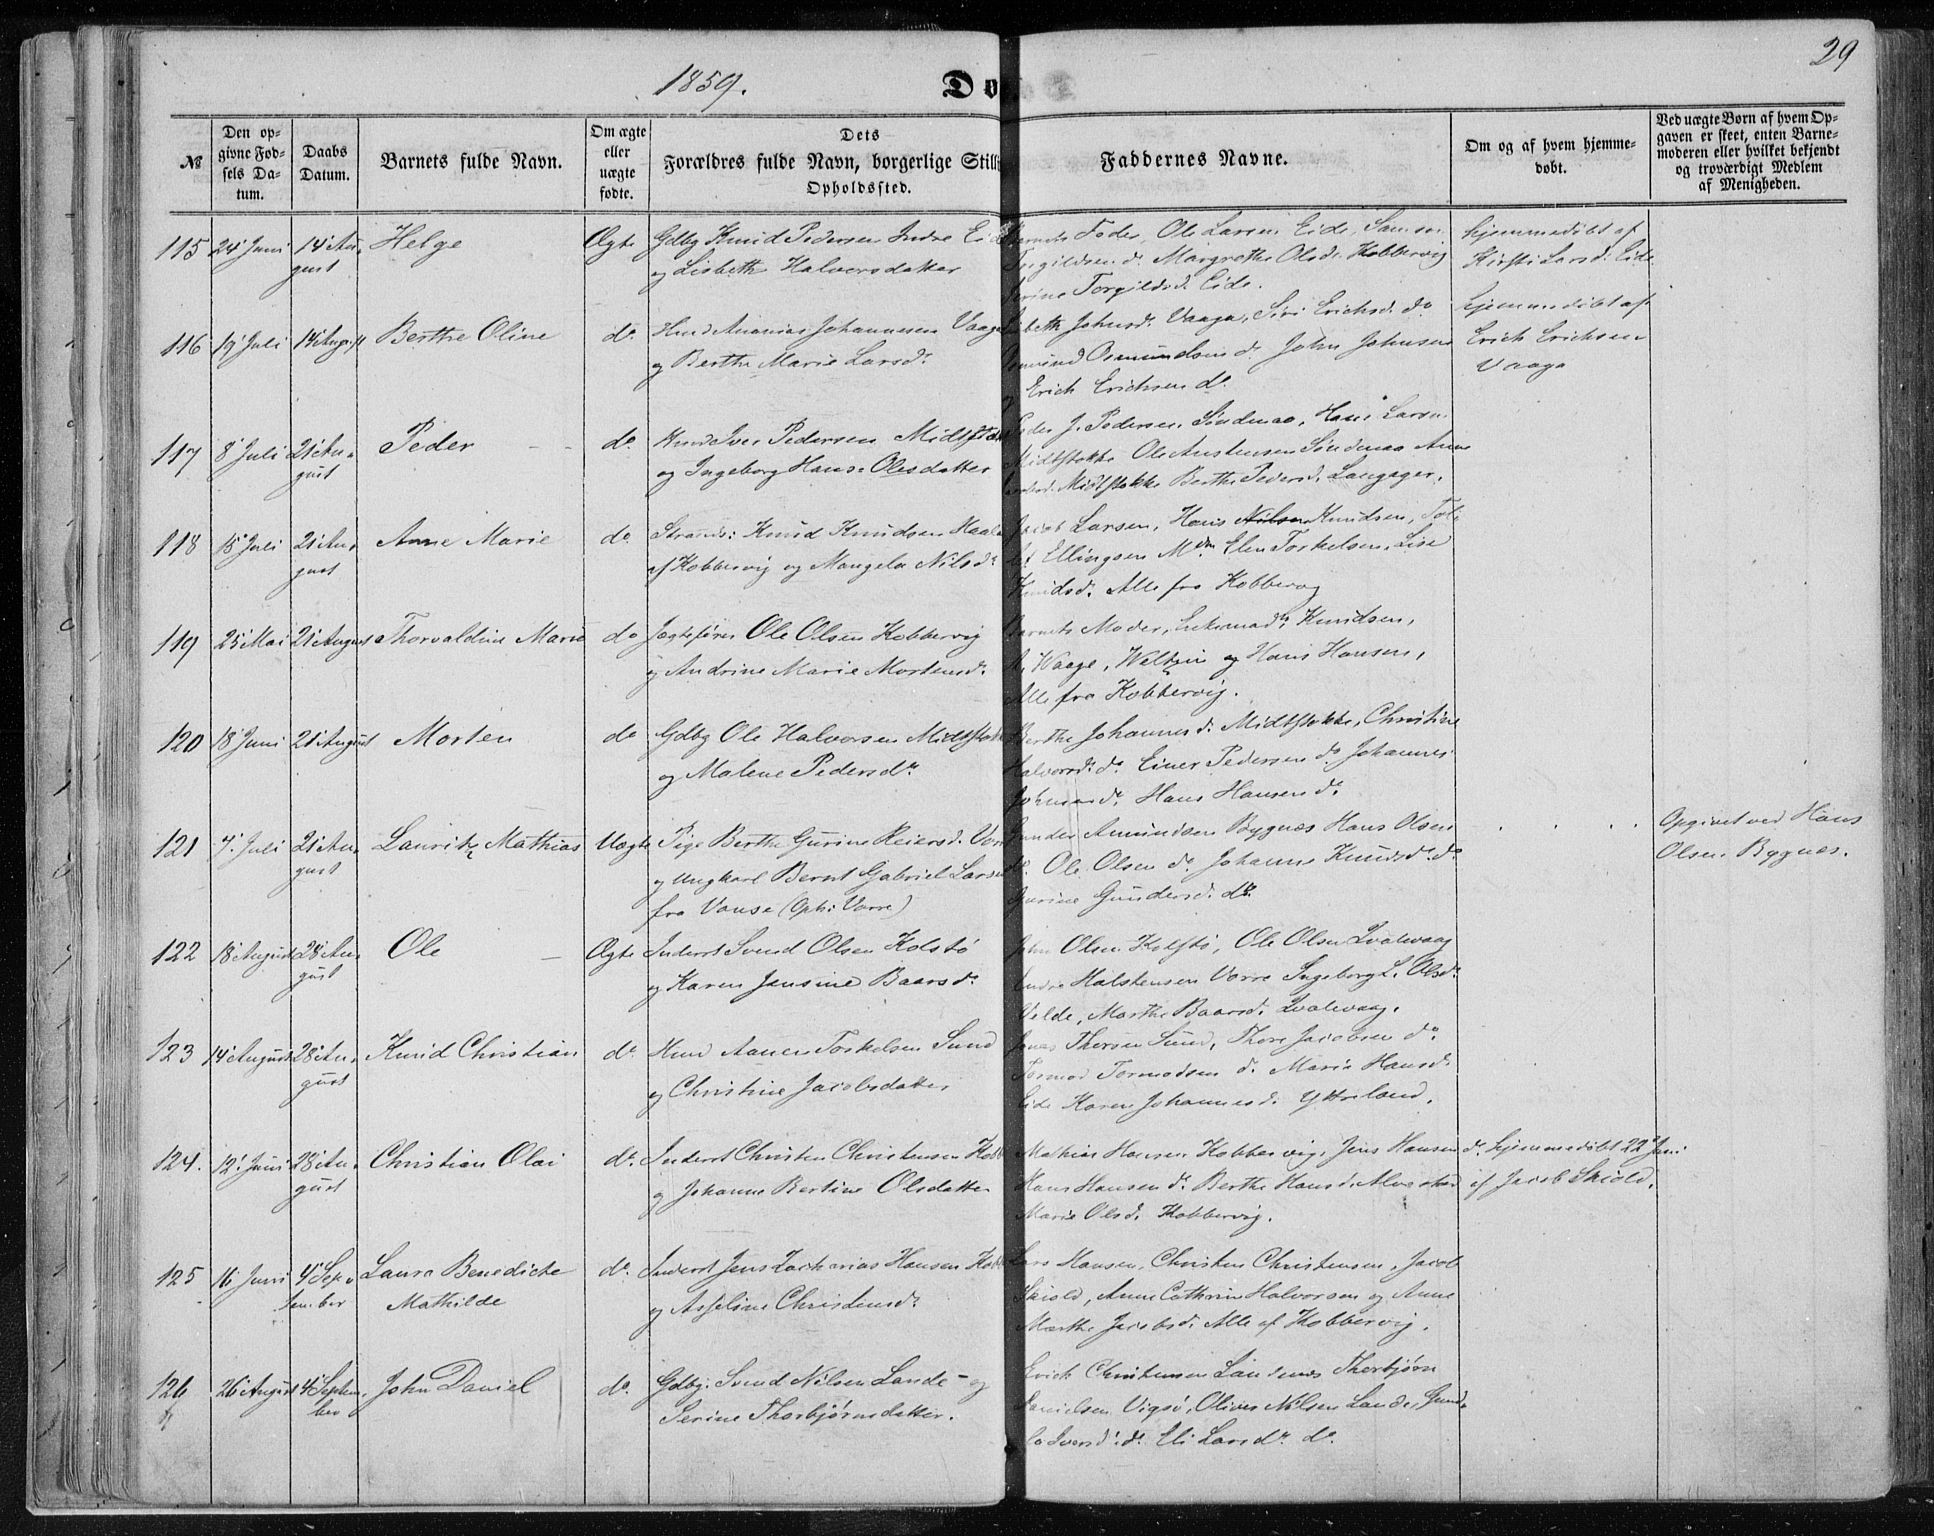 29
1859.
Do
№
Den op-
givne Fød-
sels Da-
tum.
Daabs
Datum.
Barnets fulde Navn.
Om ægte
eller
uægte
fødte.
Dets
Forældres fulde Navn, borgerlige Still
Opholdssted.
Faddernes Navne.
Om og af hvem hjemme-
døbt.
Ved uægte Børn af hvem Op-
gaven er skeet, enten Barne-
moderen eller hvilket bekjendt
og troværdigt Medlem
af Menigheden.
115 24 Juni 14 Au-
gust
Helge
Ægte
Gdbg Knud Pedersen Indre Eid
og Lisbeth Halvorsdatter
Fader, Ole Larsen Eide, Samson
Torgildsen do Margrethe Olsd. Kobbervig
Torgildsd. Eide.
hjemmedøbt af
Kirsti Larsd. Eide
116 19 Juli 14 August
Berthe Oline
do
Huusd Ananias Johannesen Vaage
og Berthe Marie Larsdr
Johnsd. Vaage, Siri Erichsd. do
Osmundsen do John Johnsen
Erich Erichsen do
hjemmedøbt af
Erich Erichsen
Vaage
117 8 Juli 21 Au-
gust
Peder
do
Iver Pedersen Midtstok
og Ingeborg Hans. Olesdatter
Peder J. Pedersen Søndenaa, Hans Larsen
Midtstokke Ole Søndenaa Anne
Midtstokke Berthe Pedersd. Langager.
118 15 Juli 21 Au-
gust
Anne Marie
do
Strands: Knud Knudsen Haal
af Kobbervig og Mangela Nilsdr
Jacob Larsen, Hans Nilsen Knudsen,
Ellingsen Mdm Elen Torkelsen, Lise
Knudsd. Alle fra Kobbervig
119 25 Mai 21 August
Thorvaldine Marie
do
Jægtefører Ole Olsen Kobbervig
og Andrine Marie Mortensd.
Barnets Moder, Knudsen,
A. Waage, og Hans Hansen,
Alle fra Kobbervig.
120 18 Juni 21 August
Morten
do
Gdbg Ole Halvorsen Midtstok
og Malene Pedersdr
Berthe Johannesd. Midtstokke, Christine
Halvorsd. do Einer Pedersen do Johannes
Johnsen do Hans Hansen do
121 7 Juli 21 Au-
gust
Lauritz Mathias
Uægte
Pige Berthe Gurine Reiersd. Vor
og Ungkarl Bernt Gabriel Larsen
fra Vanse (Oph: Vorre)
Gunder Amundsen Bygnæs Hans Olsen
do Ole Olsen do Johanne Knudsd. do
Gurine Gundersd. do
Opgivet ved Hans
Olsen Bygnæs.
122 18 August 28 Au-
gust
Ole
Ægte
Inderst Svend Olsen Kolstø
og Karen Jensine Baarsd.
John Olsen Kolstø, Ole Olsen Qvalevaag
Endre Halstensen Vorre Ingeborg L. Olsd.
Velde, Marthe Baarsd. Qvalevaag.
123 14 August 28 Au-
gust
Knud Christian
do
Huusd Aanen Torkelsen Sund
og Christine Jacobsdatter
Jonas Thorsen Sund, Thore Jacobsen do
Tormod Tormodsen do Marie Hansd.
Eide Karen Johannesd. Ytreland.
124. 12 Juni 28 Au-
gust
Christian Olai
do
Inderst Christen Christensen Kobb
og Johanne Bertine Olsdatter
Mathias Hansen Kobbervig, Jens Hansen do
Hans Hansen do Berthe Hansd.
Marie Olsd. Kobbervig.
hjemmedøbt 22 Juni
af Jacob Skiold.
125 16 Juni 4 Sep-
tember
Laura Benedicte
Mathilde
do
Inderst Jens Zacharias Hansen Kobb
og Asseline Christensdr
Lars Hansen, Christen Christensen, Jacob
Skiold, Anne Cathrine Halvorsen og Anne
Marthe Jacobsd. Alle af Kobbervig.
126 26 August 4 Septem-
ber
John Daniel
do
Gdbg. Svend Nilsen Lande og
Serine Thorbjørnsdatter.
Erich Christensen Landenæs Thorbjørn
Danielsen Vigsø, Oliver Nilsen Lande, Gund-
la Iversd. do Eli Larsdr do